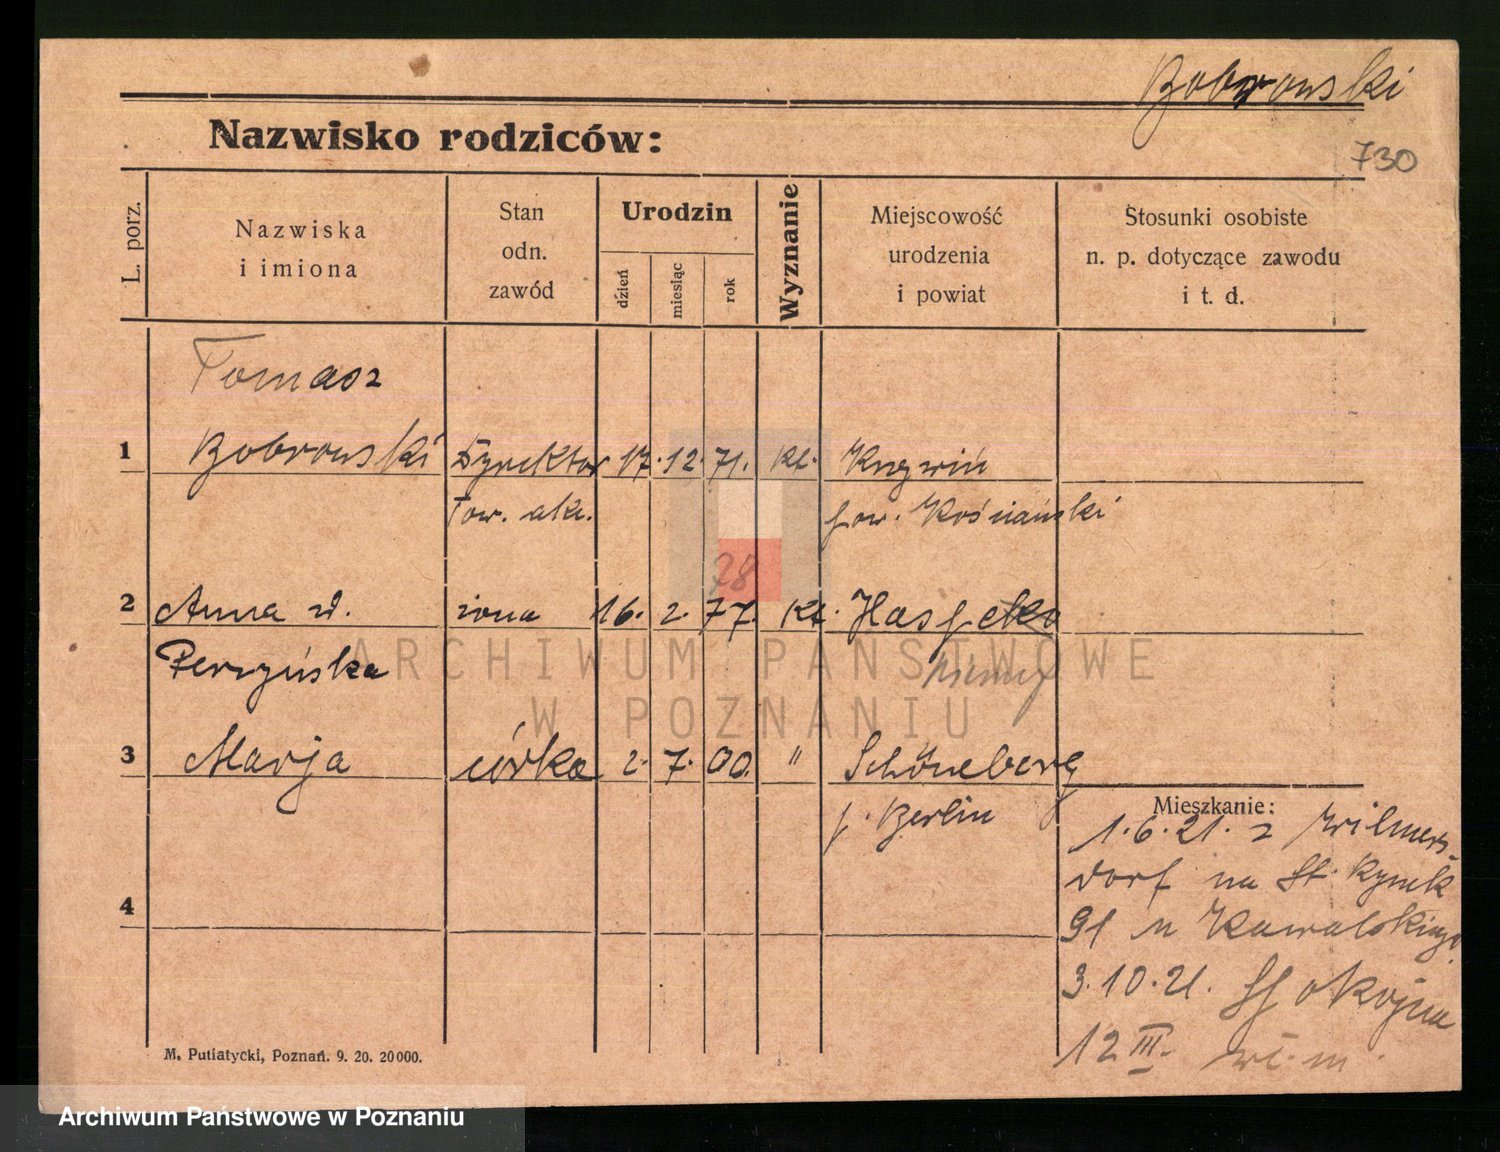 Bobrowski
Nazwisko rodziców:
730
L. porz.
Nazwiska
i imiona
Stan
odn.
zawód
Urodzin
dzień
miesiąc
rok
Wyznanie
Miejscowość
urodzenia
i powiat
Stosunki osobiste
n. p. dotyczące zawodu
i t. d.
Tomasz
1 Bobrowski Dyrektor 17. 12. 71. Kt.
Tow. akc. pow. Kościański
78
2 Anna d. żona 16. 2. 77. Kt.
Perzyńska
ARCHIWUM PAŃSTWOWE
W POZNANIU
3 Marja córka 2. 7. 00. " Schöneberg
p. Berlin
Mieszkanie:
1.6.21. z Wilmers-
dorf na St. Rynek
91 u Kowalskiego
3.10.21. Spokojna
12 III. wł. m.
4
M. Putiatycki, Poznań. 9. 20. 20000.
Archiwum Państwowe w Poznaniu